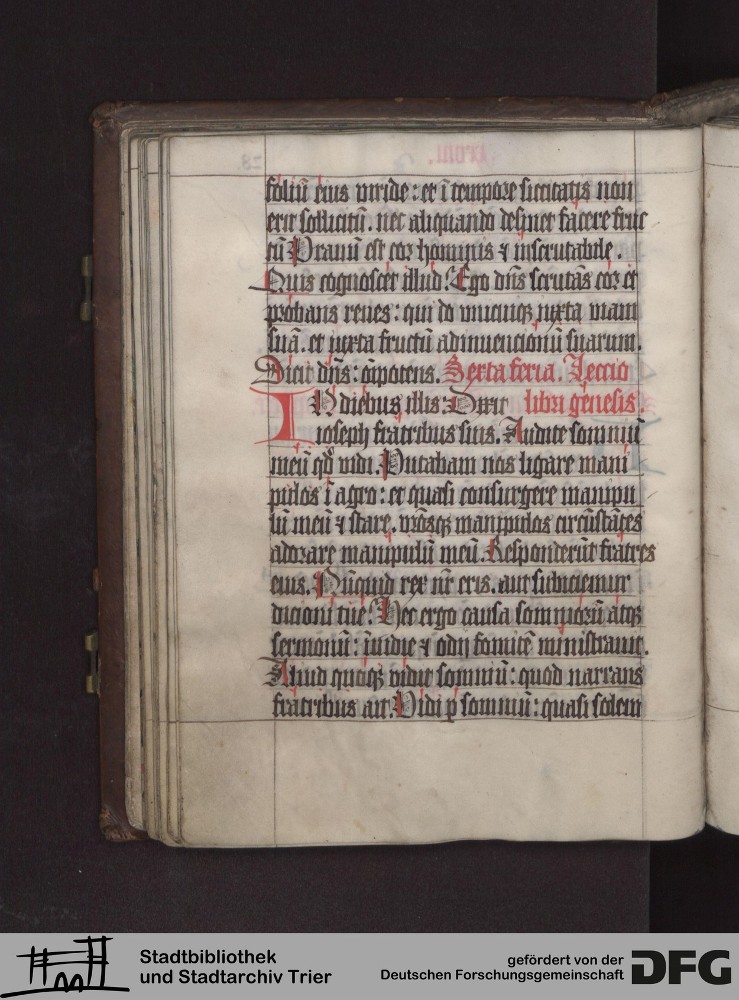 foliū eius viride: et ī tempore siccitatis non
erit sollicitū. nec aliquando desinet facere fruc
tū Pravū est cor hominis ⁊ inscrutabile.
Quis cognoscet illud? Ego dn̄s scrutās cor et
probans renes: qui do unicuiqꝫ iuxta viam
suā. et iuxta fructū adinuencionū suarum.
Dicit dn̄s: om̄ipotens. Sexta feria. Leccio
IN diebus illis: Dixit libri genesis.
ioseph fratribus suis. Audite somniū
meū qd̄ vidi. Putabam nos ligare mani
pulos ī agro: et quasi consurgere manipu
lū meū ⁊ stare. vr̄osqꝫ manipulos circūstātes
adorare manipulū meū. Responderūt fratres
eius. Nūquid rex nr̄ eris. aut subiciemur
dicioni tue? Hec ergo causa somniorū atqꝫ
sermonū: īuidie ⁊ odij fomitē ministrauit.
Aliud quoqꝫ vidit somniū: quod narrans
fratribus ait. Vidi ꝑ somniū: quasi solem
Stadtbibliothek
und Stadtarchiv Trier
gefördert von der
Deutschen Forschungsgemeinschaft
DFG